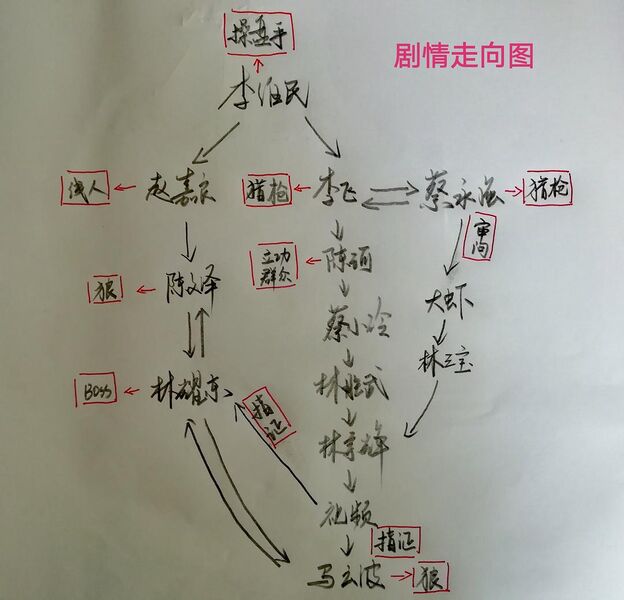 操盘手
剧情走向图
李维民
线人
赵嘉良
猎枪
李飞
蔡永强
猎枪
审问
立功
群众
陈珂
狼
陈文泽
大虾
蔡小玲
林三宝
Boss
林耀东
林胜武
指证
林宗辉
视频
指证
马云波
狼